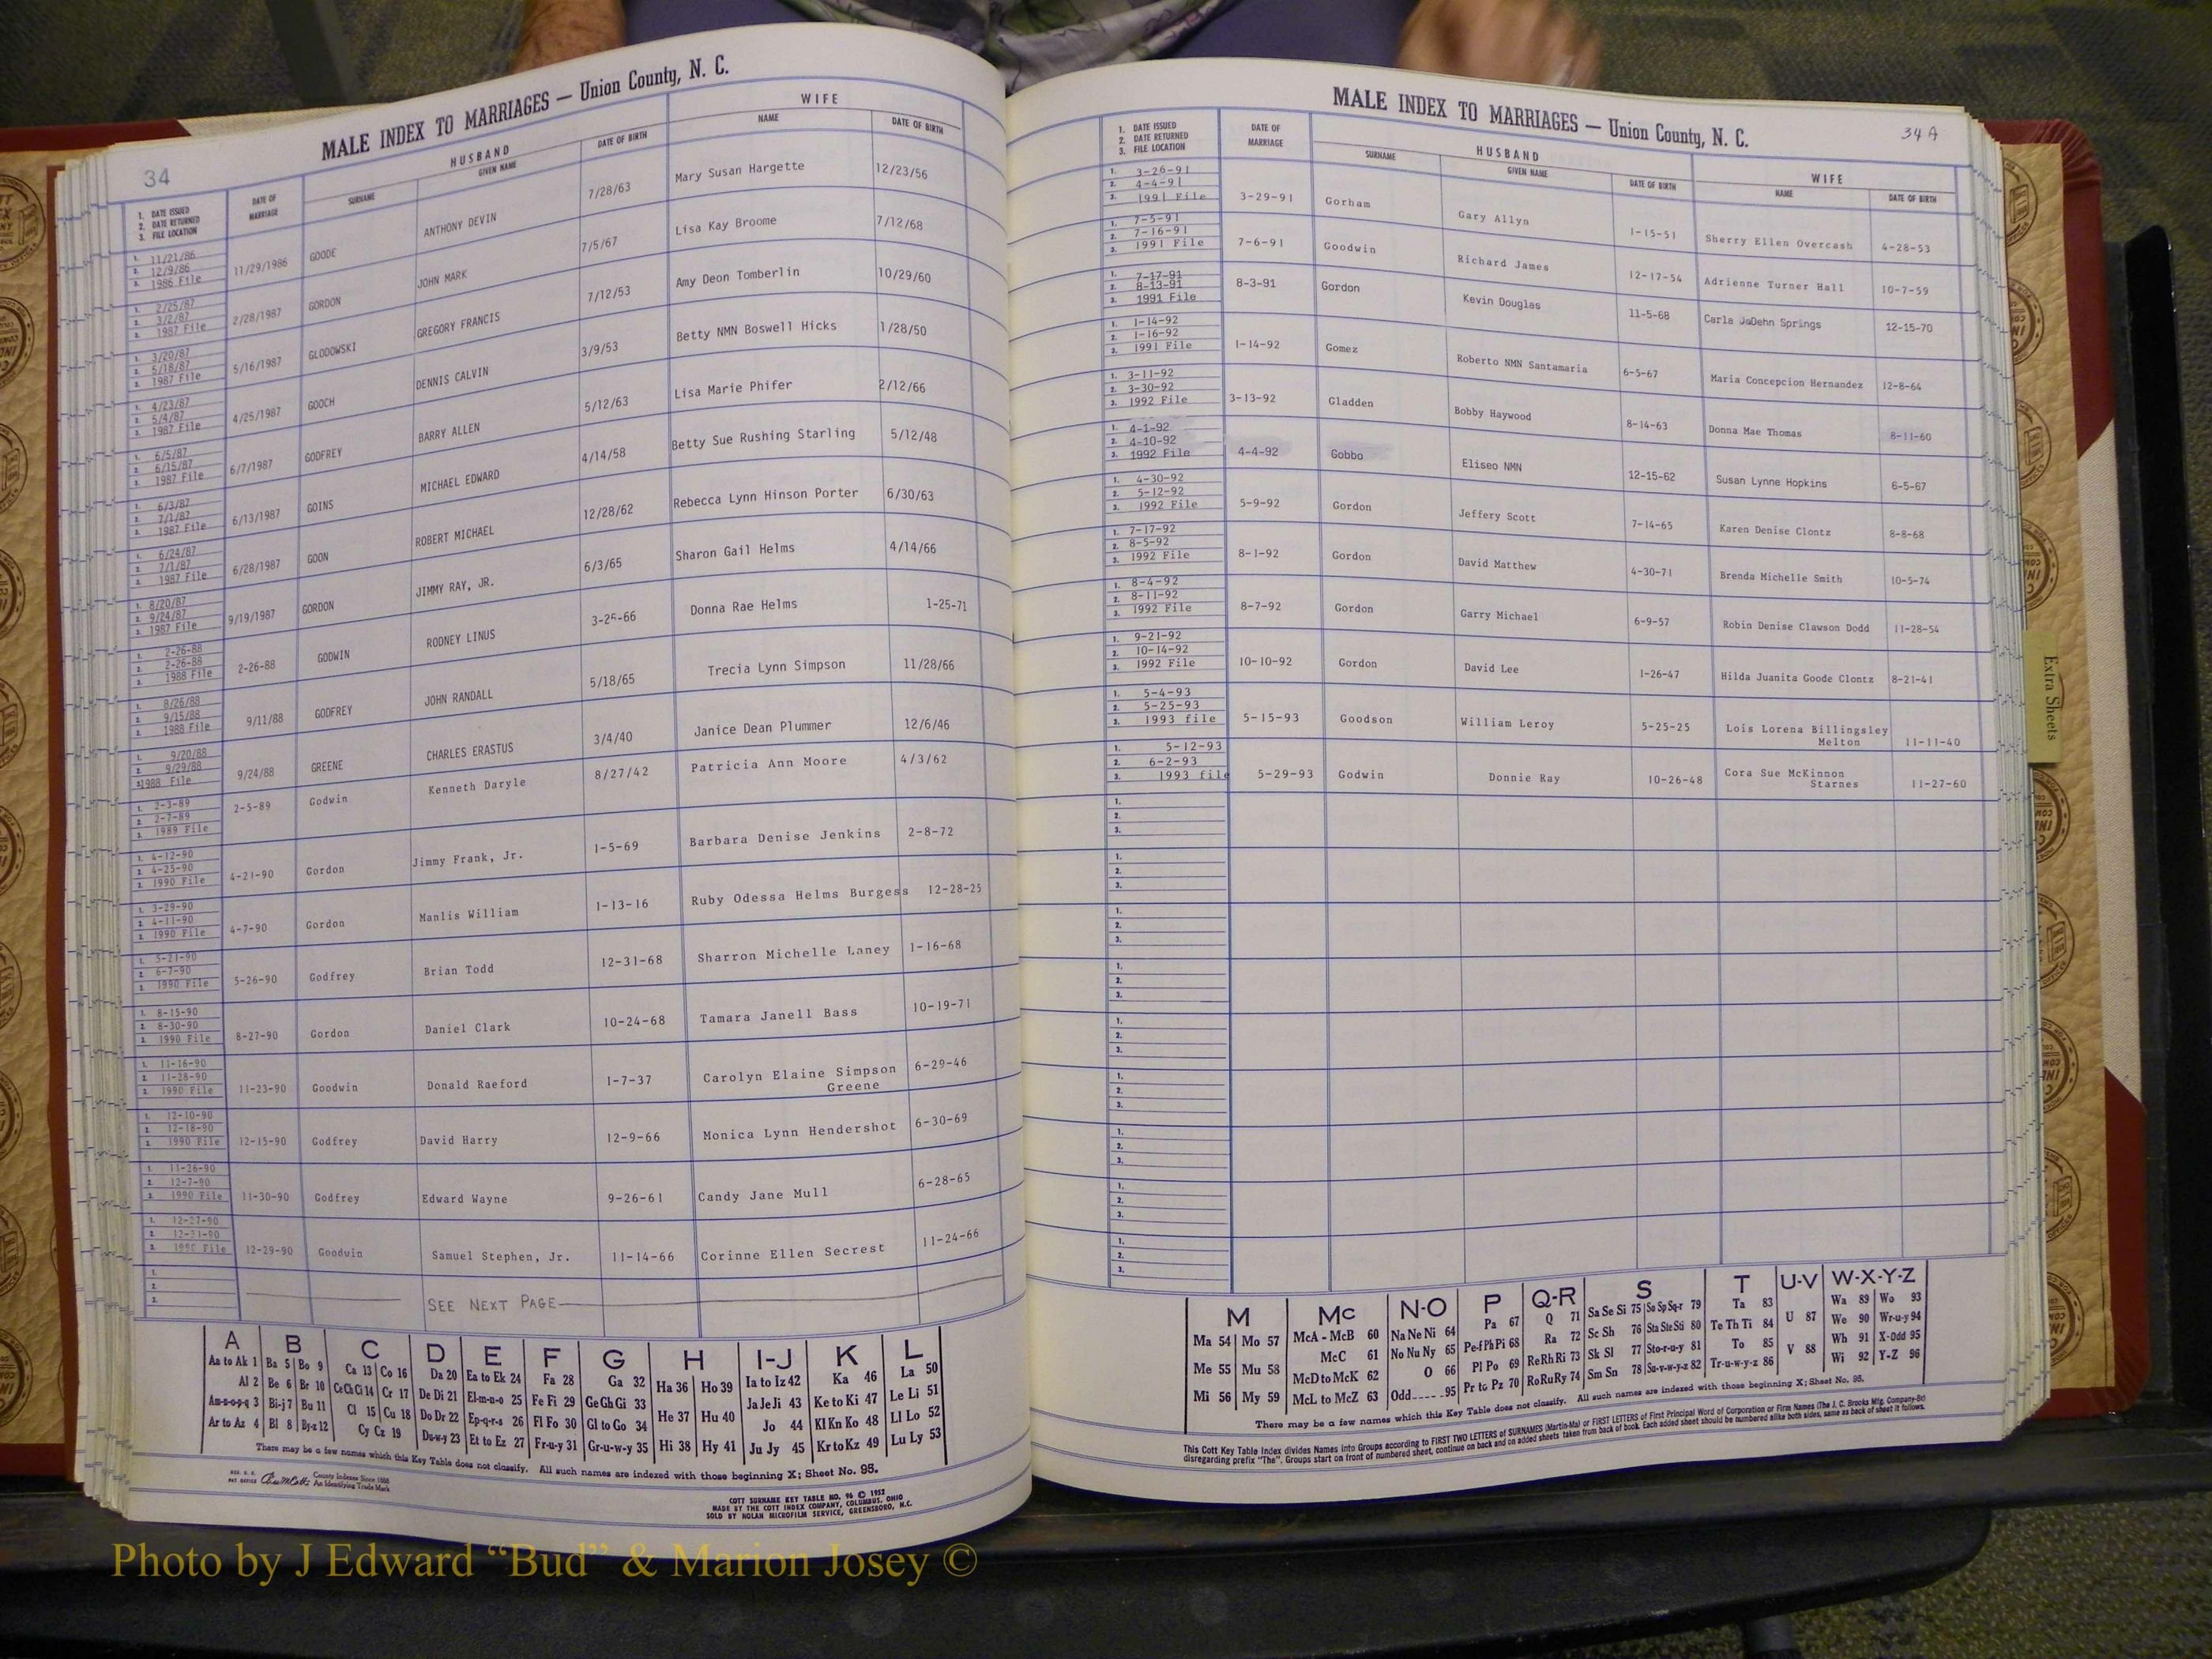 34
MALE INDEX TO MARRIAGES — Union County, N. C.
1. DATE ISSUED 2. DATE RETURNED 3. FILE LOCATION
DATE OF MARRIAGE
HUSBAND
SURNAME GIVEN NAME DATE OF BIRTH
WIFE
NAME DATE OF BIRTH
1. 11/21/86 2. 12/9/86 3. 1986 File 11/29/1986 GOODE ANTHONY DEVIN 7/28/63 Mary Susan Hargette 12/23/56
1. 2/25/87 2. 3/2/87 3. 1987 File 2/28/1987 GORDON JOHN MARK 7/5/67 Lisa Kay Broome 7/12/68
1. 3/20/87 2. 5/18/87 3. 1987 File 5/16/1987 GLODOWSKI GREGORY FRANCIS 7/12/53 Amy Deon Tomberlin 10/29/60
1. 4/23/87 2. 5/4/87 3. 1987 File 4/25/1987 GOOCH DENNIS CALVIN 3/9/53 Betty NMN Boswell Hicks 1/28/50
1. 6/5/87 2. 6/15/87 3. 1987 File 6/7/1987 GODFREY BARRY ALLEN 5/12/63 Lisa Marie Phifer 2/12/66
1. 6/3/87 2. 7/1/87 3. 1987 File 6/13/1987 GOINS MICHAEL EDWARD 4/14/58 Betty Sue Rushing Starling 5/12/48
1. 6/24/87 2. 7/1/87 3. 1987 File 6/28/1987 GOON ROBERT MICHAEL 12/28/62 Rebecca Lynn Hinson Porter 6/30/63
1. 8/20/87 2. 9/24/87 3. 1987 File 9/19/1987 GORDON JIMMY RAY, JR. 6/3/65 Sharon Gail Helms 4/14/66
1. 2-26-88 2. 2-26-88 3. 1988 File 2-26-88 GODWIN RODNEY LINUS 3-25-66 Donna Rae Helms 1-25-71
1. 8/26/88 2. 9/15/88 3. 1988 File 9/11/88 GODFREY JOHN RANDALL 5/18/65 Trecia Lynn Simpson 11/28/66
1. 9/20/88 2. 9/29/88 3. 1988 File 9/24/88 GREENE CHARLES ERASTUS 3/4/40 Janice Dean Plummer 12/6/46
1. 2-3-89 2. 2-7-89 3. 1989 File 2-5-89 Godwin Kenneth Daryle 8/27/42 Patricia Ann Moore 4/3/62
1. 4-12-90 2. 4-25-90 3. 1990 File 4-21-90 Gordon Jimmy Frank, Jr. 1-5-69 Barbara Denise Jenkins 2-8-72
1. 3-29-90 2. 4-11-90 3. 1990 File 4-7-90 Gordon Manlis William 1-13-16 Ruby Odessa Helms Burgess 12-28-25
1. 5-21-90 2. 6-7-90 3. 1990 File 5-26-90 Godfrey Brian Todd 12-31-68 Sharron Michelle Laney 1-16-68
1. 8-15-90 2. 8-30-90 3. 1990 File 8-27-90 Gordon Daniel Clark 10-24-68 Tamara Janell Bass 10-19-71
1. 11-16-90 2. 11-28-90 3. 1990 File 11-23-90 Goodwin Donald Raeford 1-7-37 Carolyn Elaine Simpson Greene 6-29-46
1. 12-10-90 2. 12-18-90 3. 1990 File 12-15-90 Godfrey David Harry 12-9-66 Monica Lynn Hendershot 6-30-69
1. 11-26-90 2. 12-7-90 3. 1990 File 11-30-90 Godfrey Edward Wayne 9-26-61 Candy Jane Mull 6-28-65
1. 12-27-90 2. 12-31-90 3. 1990 File 12-29-90 Goodwin Samuel Stephen, Jr. 11-14-66 Corinne Ellen Secrest 11-24-66
1. 2. 3. SEE NEXT PAGE
A B C D E F G H I-J K L
Aa to Ak 1 Ba 5 Bo 9 Ca 13 Co 16 Da 20 Ea to Ek 24 Fa 28 Ga 32 Ha 36 Ho 39 Ia to Iz 42 Ka 46 La 50
Al 2 Be 6 Br 10 CeChCi 14 Cr 17 De Di 21 El-m-n-o 25 Fe Fi 29 Ge Gh Gi 33 He 37 Hu 40 Ja Je Ji 43 Ke to Ki 47 Le Li 51
Am-n-o-p-q 3 Bi-j 7 Bu 11 Cl 15 Cu 18 Do Dr 22 Ep-q-r-s 26 Fl Fo 30 Gl to Go 34 Hi 38 Hy 41 Jo 44 Kl Kn Ko 48 Ll Lo 52
Ar to Az 4 Bl 8 By-z 12 Cy Cz 19 Du-w-y 23 Et to Ez 27 Fr-u-y 31 Gr-u-w-y 35 Ju Jy 45 Kr to Kz 49 Lu Ly 53
There may be a few names which this Key Table does not classify. All such names are indexed with those beginning X; Sheet No. 95.
County Indexes Since 1888
An Identifying Trade Mark
COTT SURNAME KEY TABLE NO. 96 © 1952
MADE BY THE COTT INDEX COMPANY, COLUMBUS, OHIO
SOLD BY NOLAN MICROFILM SERVICE, GREENSBORO, N.C.
MALE INDEX TO MARRIAGES — Union County, N. C.
34 A
1. DATE ISSUED 2. DATE RETURNED 3. FILE LOCATION
DATE OF MARRIAGE
HUSBAND
SURNAME GIVEN NAME DATE OF BIRTH
WIFE
NAME DATE OF BIRTH
1. 3-26-91 2. 4-4-91 3. 1991 File 3-29-91 Gorham Gary Allyn 1-15-51 Sherry Ellen Overcash 4-28-53
1. 7-5-91 2. 7-16-91 3. 1991 File 7-6-91 Goodwin Richard James 12-17-54 Adrienne Turner Hall 10-7-59
1. 7-17-91 2. 8-13-91 3. 1991 File 8-3-91 Gordon Kevin Douglas 11-5-68 Carla JaDehn Springs 12-15-70
1. 1-14-92 2. 1-16-92 3. 1991 File 1-14-92 Gomez Roberto NMN Santamaria 6-5-67 Maria Concepcion Hernandez 12-8-64
1. 3-11-92 2. 3-30-92 3. 1992 File 3-13-92 Gladden Bobby Haywood 8-14-63 Donna Mae Thomas 8-11-60
1. 4-1-92 2. 4-10-92 3. 1992 File 4-4-92 Gobbo Eliseo NMN 12-15-62 Susan Lynne Hopkins 6-5-67
1. 4-30-92 2. 5-12-92 3. 1992 File 5-9-92 Gordon Jeffery Scott 7-14-65 Karen Denise Clontz 8-8-68
1. 7-17-92 2. 8-5-92 3. 1992 File 8-1-92 Gordon David Matthew 4-30-71 Brenda Michelle Smith 10-5-74
1. 8-4-92 2. 8-11-92 3. 1992 File 8-7-92 Gordon Garry Michael 6-9-57 Robin Denise Clawson Dodd 11-28-54
1. 9-21-92 2. 10-14-92 3. 1992 File 10-10-92 Gordon David Lee 1-26-47 Hilda Juanita Goode Clontz 8-21-41
1. 5-4-93 2. 5-25-93 3. 1993 file 5-15-93 Goodson William Leroy 5-25-25 Lois Lorena Billingsley Melton 11-11-40
1. 5-12-93 2. 6-2-93 3. 1993 file 5-29-93 Godwin Donnie Ray 10-26-48 Cora Sue McKinnon Starnes 11-27-60
1. 2. 3.
1. 2. 3.
1. 2. 3.
1. 2. 3.
1. 2. 3.
1. 2. 3.
1. 2. 3.
1. 2. 3.
1. 2. 3.
Extra Sheets
M Mc N-O P Q-R S T U-V W-X-Y-Z
Ma 54 Mo 57 McA - McB 60 Na Ne Ni 64 Pa 67 Q 71 Sa Se Si 75 So Sp Sq-r 79 Ta 83 U 87 Wa 89 Wo 93
Me 55 Mu 58 McC 61 No Nu Ny 65 Pe-f Ph Pi 68 Ra 72 Sc Sh 76 Sta Ste Sti 80 Te Th Ti 84 V 88 We 90 Wr-u-y 94
Mi 56 My 59 McD to McK 62 O 66 Pl Po 69 Re Rh Ri 73 Sk Sl 77 Sto-r-u-y 81 To 85 Wh 91 X-Odd 95
McL to McZ 63 Odd 95 Pr to Pz 70 Ro Ru Ry 74 Sm Sn 78 Su-v-w-y-z 82 Tr-u-w-y-z 86 Wi 92 Y-Z 96
There may be a few names which this Key Table does not classify. All such names are indexed with those beginning X; Sheet No. 95.
This Cott Key Table Index divides Names into Groups according to FIRST TWO LETTERS of SURNAMES (Martin-Ma) or FIRST LETTERS of First Principal Word of Corporation or Firm Names (The J. C. Brooks Mfg. Company-Br)
disregarding prefix "The". Groups start on front of numbered sheet, continue on back and on added sheets taken from back of book. Each added sheet should be numbered alike both sides, same as back of sheet it follows.
Photo by J Edward “Bud” & Marion Josey ©